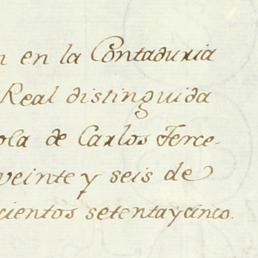 n en la Contaduria
Real distinguida
ola de Carlos Terce-
veinte y seis de
cientos setentaycinco.